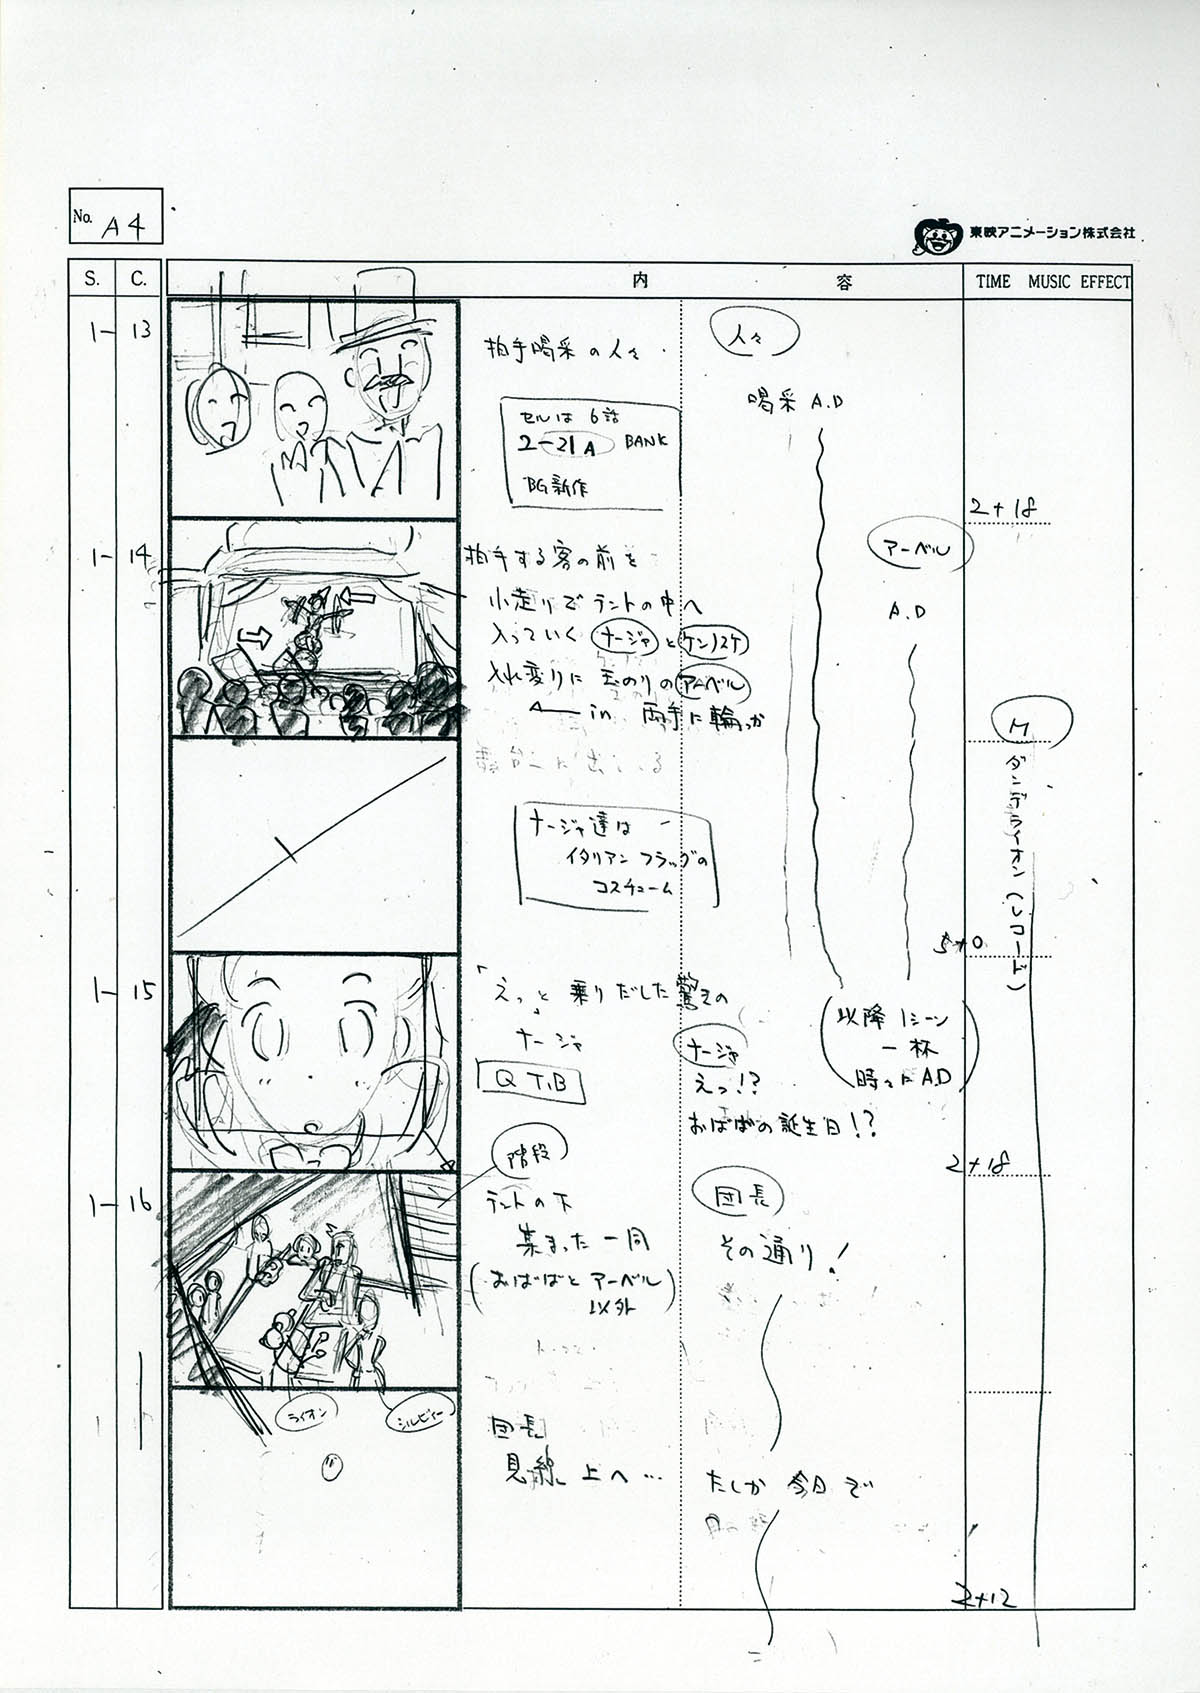 No. A4
東映アニメーション株式会社
S. C. 内 容 TIME MUSIC EFFECT
1- 13
拍手喝采の人々
人々
喝采 A.D
セルは 6話
2-21A BANK
BG新作
2+18
1- 14
拍手する客の前を
小走りでテントの中へ
入っていく ナージャ と ケンノスケ
入れ変りに 玉のりの アーベル
in 両手に輪っか
アーベル
A.D
M
ダンデライオン(レコード)
ナージャ達は
イタリアン フラッグの
コスチューム
5+0
1- 15
「えっ」と 乗りだした驚きの
ナージャ
Q T.B
ナージャ
えっ!?
おばばの誕生日!?
(以降 1シーン
一杯
時々に A.D)
2+18
1- 16
階段
テントの下
集まった 一同
(おばばと アーベル
以外)
団長
その通り!
ライオン
シルビィー
団長
見線 上へ…
たしか 今日で
2+12